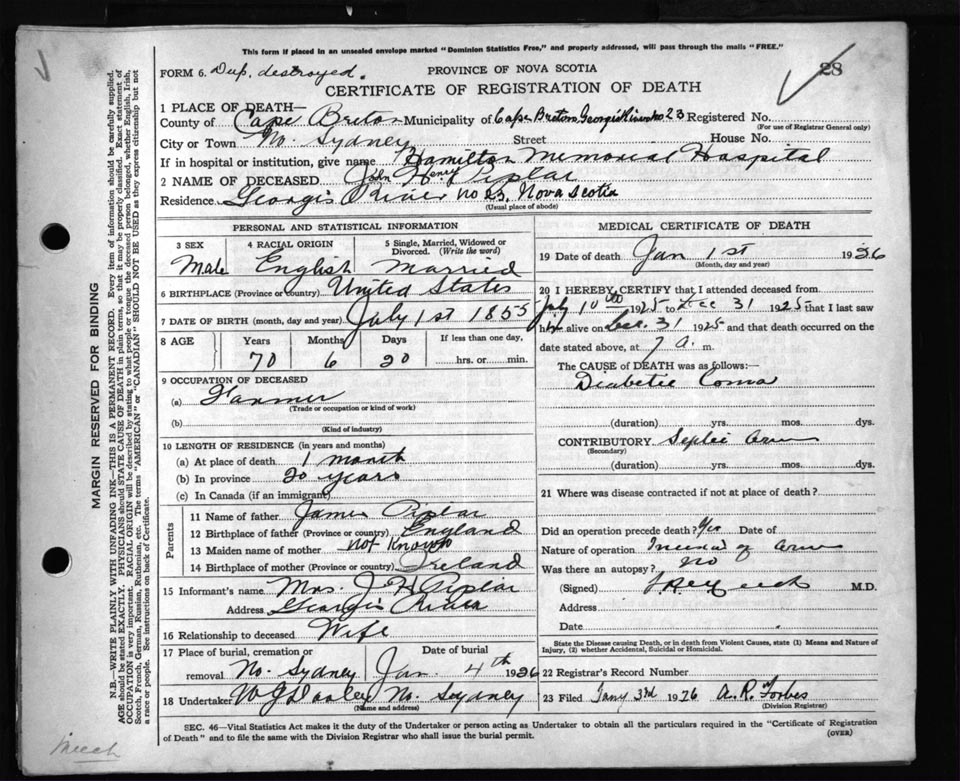 This form if placed in an unsealed envelope marked "Dominion Statistics Free," and properly addressed, will pass through the mails "FREE."
28
FORM 6. Dup. destroyed.
PROVINCE OF NOVA SCOTIA
CERTIFICATE OF REGISTRATION OF DEATH
1 PLACE OF DEATH—
County of Cape Breton Municipality of Cape Breton Georges River No 23 Registered No.
(For use of Registrar General only)
City or Town No. Sydney Street House No.
If in hospital or institution, give name Hamilton Memorial Hospital
2 NAME OF DECEASED John Henry Piplar
Residence Georges River No 23, Nova Scotia
(Usual place of abode)
PERSONAL AND STATISTICAL INFORMATION
3 SEX 4 RACIAL ORIGIN 5 Single, Married, Widowed or Divorced. (Write the word)
Male English Married
6 BIRTHPLACE (Province or country) United States
7 DATE OF BIRTH (month, day and year) July 1st 1855
8 AGE Years Months Days If less than one day,
70 6 20 hrs. or min.
9 OCCUPATION OF DECEASED
(a) Farmer
(Trade or occupation or kind of work)
(b)
(Kind of industry)
10 LENGTH OF RESIDENCE (in years and months)
(a) At place of death 1 month
(b) In province 20 years
(c) In Canada (if an immigrant)
Parents
11 Name of father James Piplar
12 Birthplace of father (Province or country) England
13 Maiden name of mother Not Known
14 Birthplace of mother (Province or country) Ireland
15 Informant's name Mrs. J H Piplar
Address Georges River
16 Relationship to deceased Wife
17 Place of burial, cremation or removal Date of burial
No. Sydney Jan. 4th 1926
18 Undertaker No. Sydney
(Name and address)
MEDICAL CERTIFICATE OF DEATH
19 Date of death Jan 1st 1926
(Month, day and year)
20 I HEREBY CERTIFY that I attended deceased from
July 10th 1925 to Dec 31 1925 that I last saw
him alive on Dec. 31 1925 and that death occurred on the
date stated above, at 7 a. m.
The CAUSE of DEATH was as follows:—
Diabetic Coma
(duration) yrs. mos. dys.
CONTRIBUTORY Septic arm
(Secondary)
(duration) yrs. mos. dys.
21 Where was disease contracted if not at place of death?
Did an operation precede death? Yes Date of
Nature of operation of arm
Was there an autopsy? No
(Signed) M.D.
Address
Date
State the Disease causing Death, or in death from Violent Causes, state (1) Means and Nature of Injury, (2) whether Accidental, Suicidal or Homicidal.
22 Registrar's Record Number
23 Filed Jany 3rd 1926 A. R. Forbes
(Division Registrar)
SEC. 46—Vital Statistics Act makes it the duty of the Undertaker or person acting as Undertaker to obtain all the particulars required in the "Certificate of Registration
of Death" and to file the same with the Division Registrar who shall issue the burial permit.
(OVER)
MARGIN RESERVED FOR BINDING
N.B.—WRITE PLAINLY WITH UNFADING INK—THIS IS A PERMANENT RECORD. Every item of information should be carefully supplied.
AGE should be stated EXACTLY. PHYSICIANS should STATE CAUSE OF DEATH in plain terms, so that it may be properly classified. Exact statement of
OCCUPATION is very important. RACIAL ORIGIN will be described by stating to what people or tongue the deceased person belonged, whether English, Irish,
Scotch, French, German, Russian, Ruthenian, etc. The terms "AMERICAN" or "CANADIAN" SHOULD NOT BE USED as they express citizenship but not
a race or people. See instructions on back of Certificate.